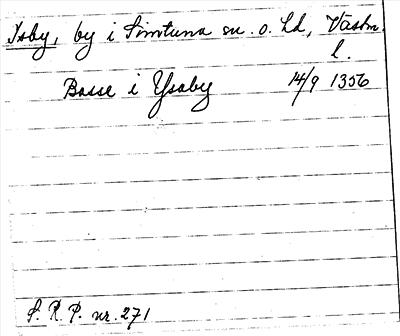 Isby, by i Simtuna sn. o. hd, Västm.
l.
Basse i Ysaby 14/9 1356
S. R. P. nr. 271